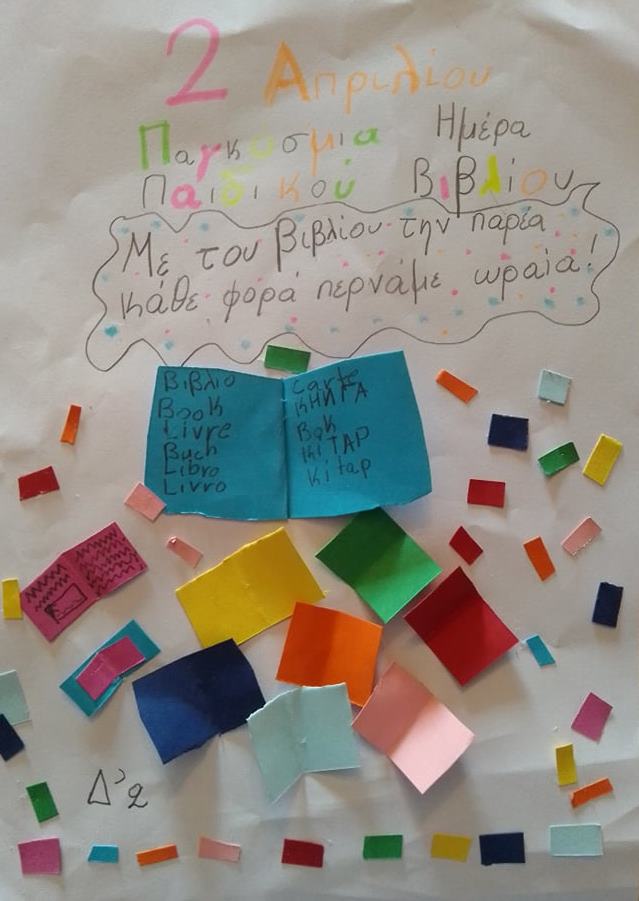 2 Απριλίου
Παγκόσμια Ημέρα
Παιδικού Βιβλίου
Με του βιβλίου την παρέα
κάθε φορά περνάμε ωραία!
Βιβλιο
Book
Livre
Buch
Libro
Livro
carte
КНИГА
Bok
KiTAP
Kitap
Δ'2